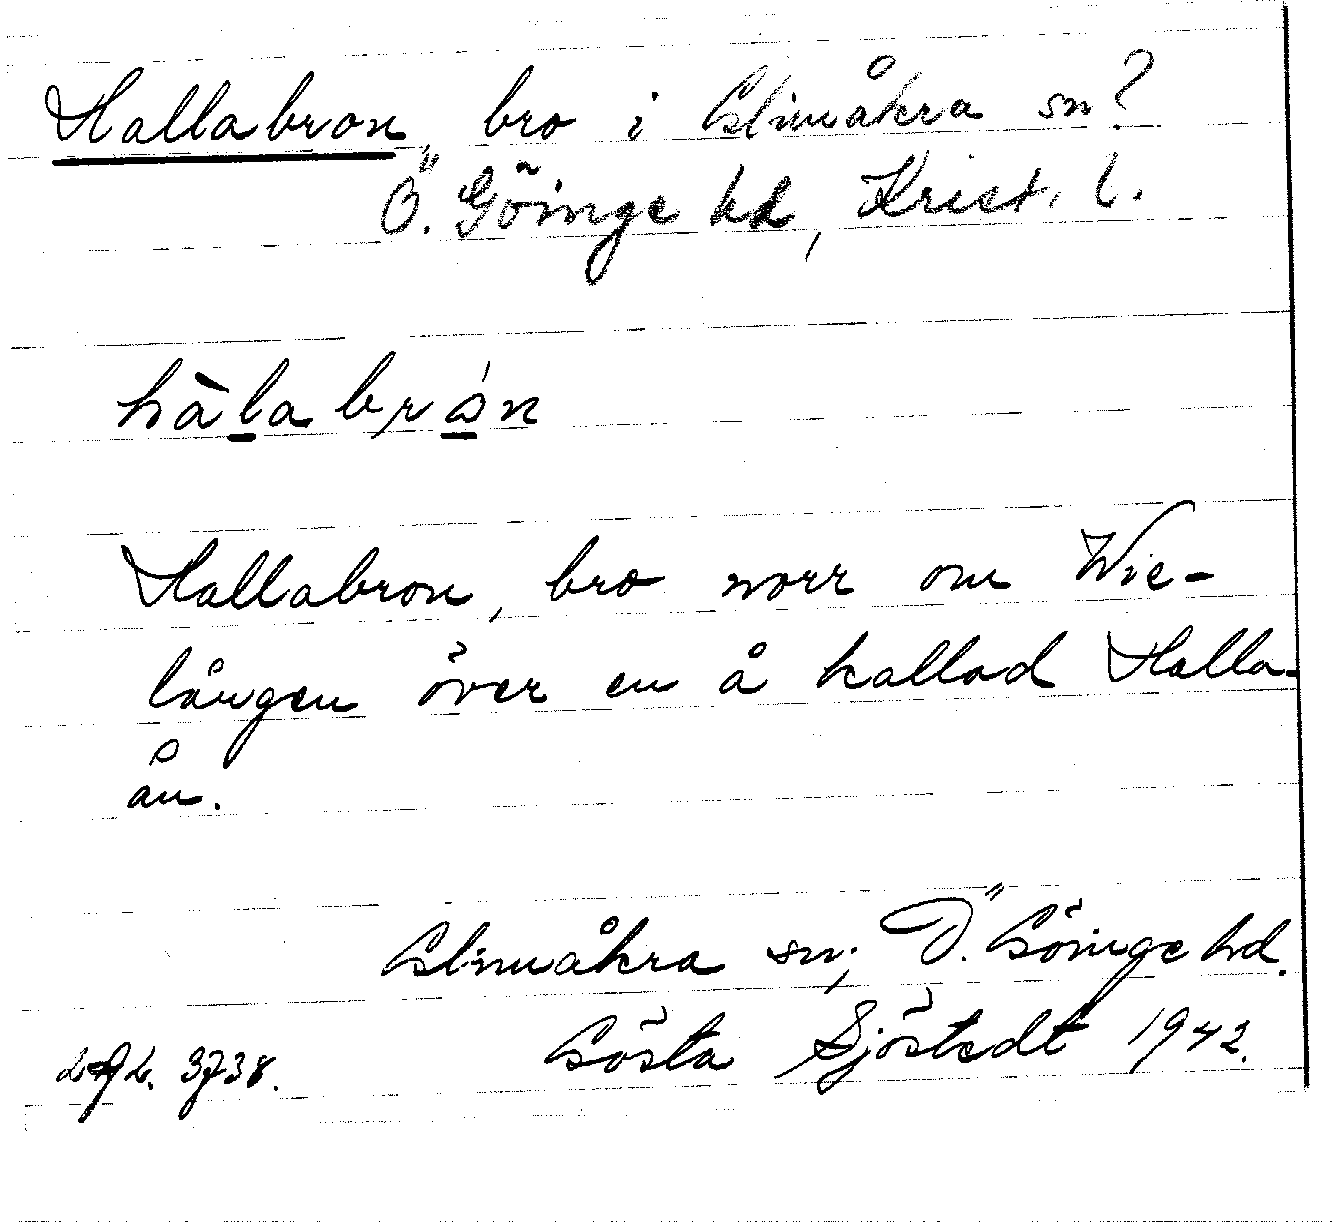 Hallabron, bro i Glimåkra sn?
Ö. Göinge hd, Krist. l.
hàlabrón
Hallabron, bro norr om Wie-
lången över en å kallad Halla-
ån.
Glimåkra sn; Ö. Göinge hd.
Gösta Sjöstedt 1942.
3738.